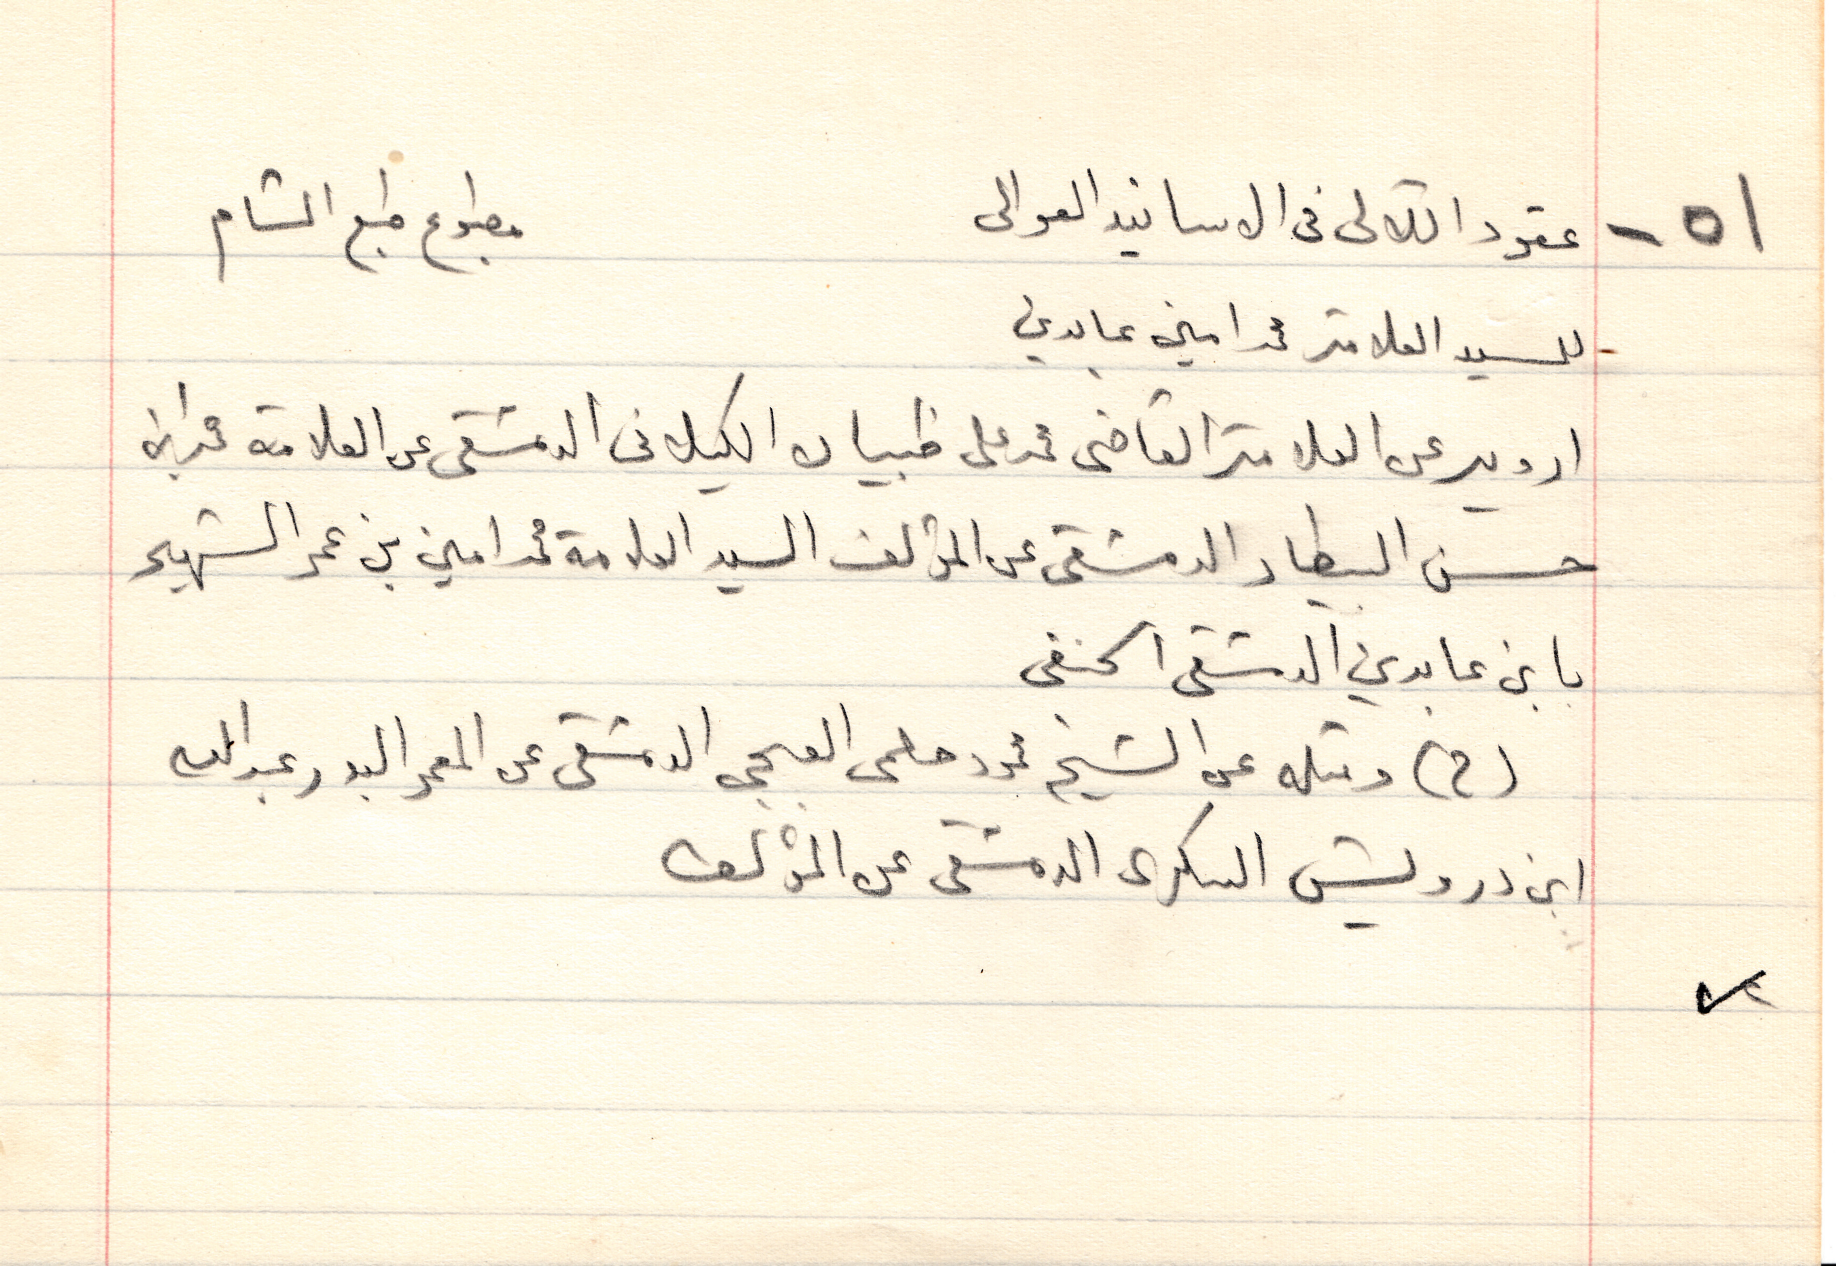 ٥١ - عقود اللآلى فى الاسانيد العوالى مطبوع طبع الشام
للسيد العلامة محمد امين عابدين
ارويه عن العلامة القاضى محمد على ظبيان الكيلانى الدمشقى عن العلامة محمد ابن
حسن البيطار الدمشقى عن المؤلف السيد العلامة محمد امين بن عمر الشهير
بابن عابدين الدمشقى الحنفى
(ح) ومثله عن الشيخ محمود حلمى الدمشقى عن المعمر البدر عبد الله
ابن درويش السكرى الدمشقى عن المؤلف